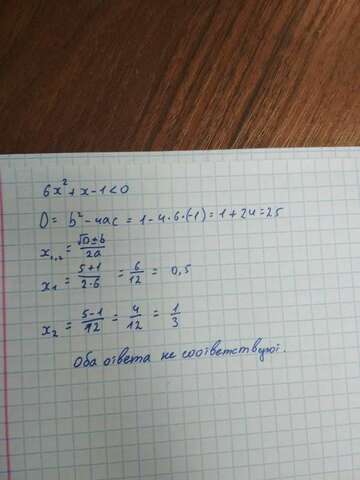 6x²+x-1<0
D = b²-4ac = 1-4·6·(-1) = 1+24=25
x₁,₂ = √D±b/2a
x₁ = 5+1/2·6 = 6/12 = 0,5
x₂ = 5-1/12 = 4/12 = 1/3
Оба ответа не соответствуют.